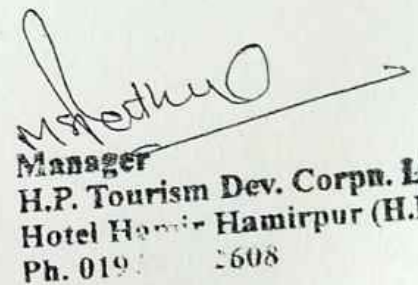 Manager
H.P. Tourism Dev. Corpn. L
Hotel Hamir Hamirpur (H.
Ph. 019 2608